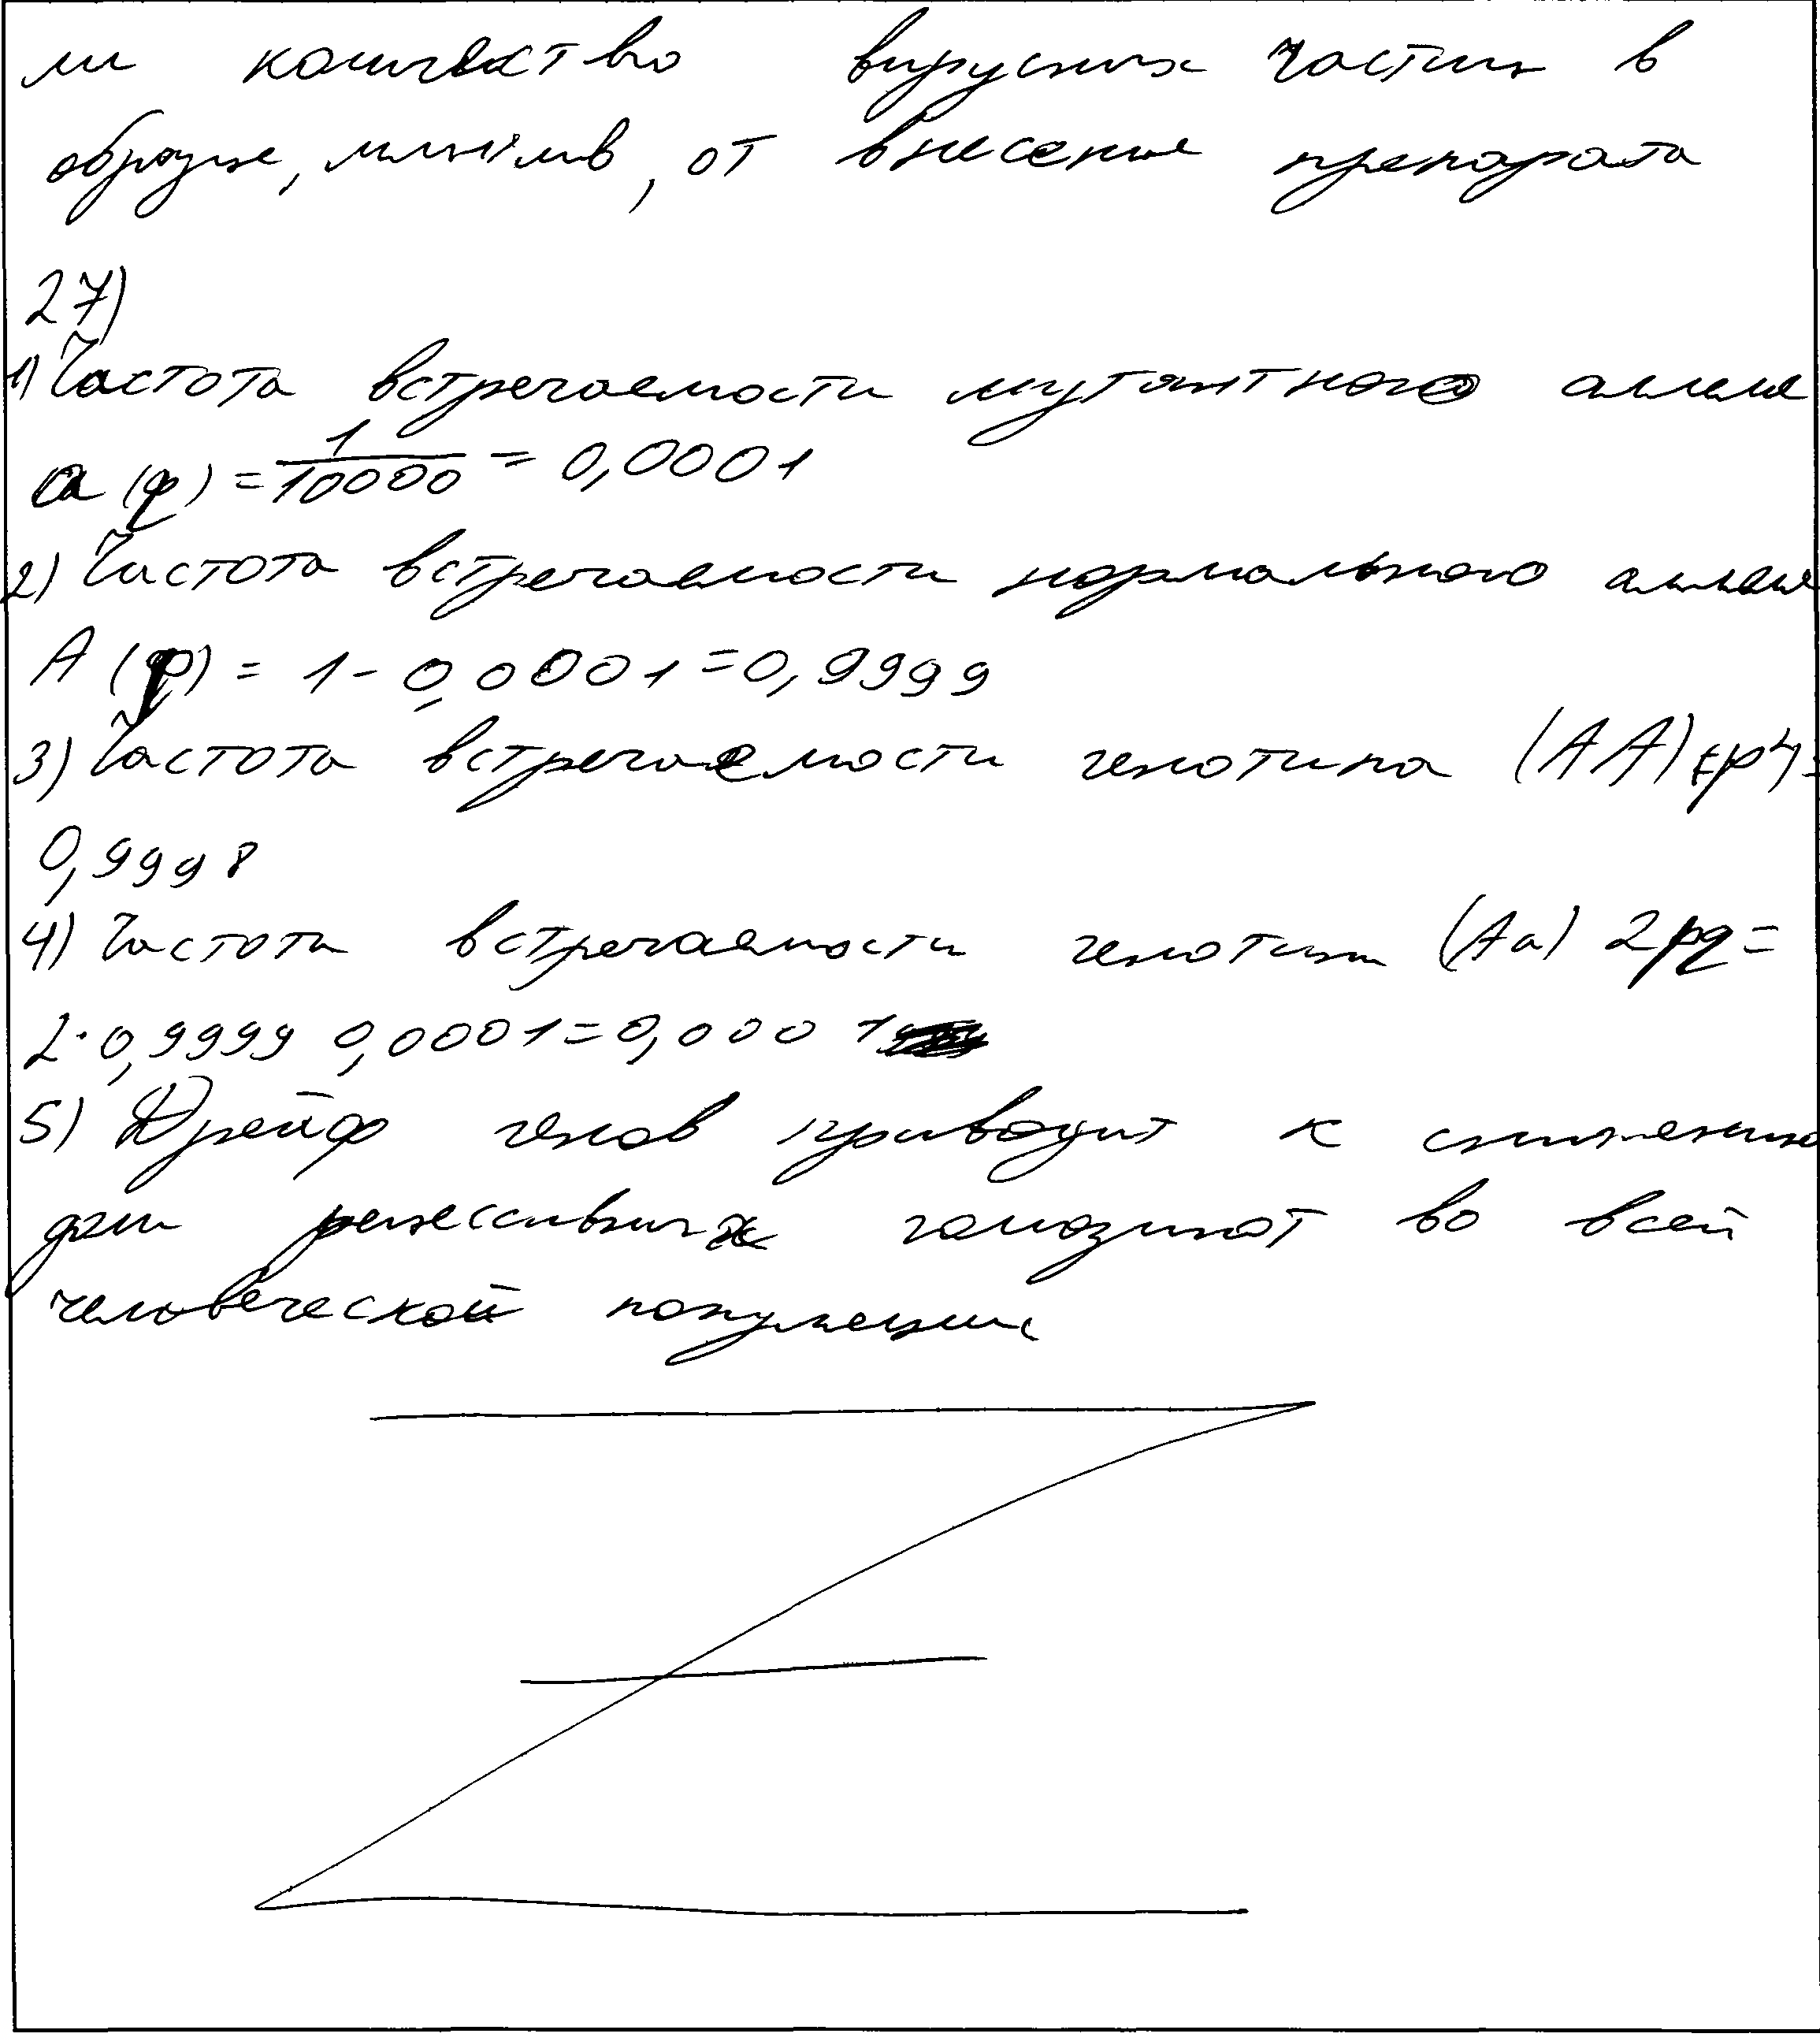 ли количество вирусных частиц в
образце, мли/мл, от внесения препарата
27)
1) Частота встречаемости мутантного аллеля
a (q) = 1/10000 = 0,0001
2) Частота встречаемости нормального аллеля
A (p) = 1 - 0,0001 = 0,9999
3) Частота встречаемости генотипа (AA) (p²) =
0,9998
4) Частота встречаемости генотипа (Aa) 2pq =
2·0,9999 0,0001 = 0,0001
5) Дрейф генов приводит к снижению
доли рецессивных гомозигот во всей
человеческой популяции